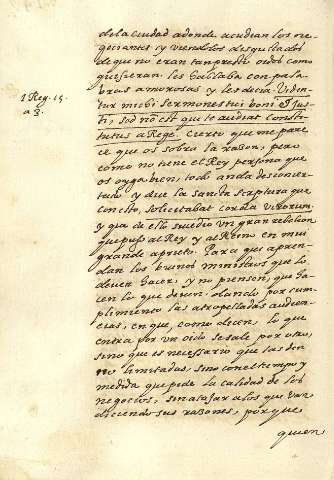 de la ciudad adonde acudian los ne-
gociantes y viendolos desgustados
de que no eran tan presto oidos como
quisieran les hablaba con pala-
bras amorosas y les decia: Viden-
tur mihi sermones tui boni et Jus-
ti, sed non est qui te audiat consti-
tutus a Rege. Cierto que me pare
ce que os sobra la razon, pero
como no tiene el Rey persona que
os oyga bien, todo anda desconcer-
tado y dice la sancta scriptura que
con esto, solicitabat corda virorum,
y que de ello sucedio un gran rebelion
que puso al Rey y al Reino en mui
grande aprieto. Para que apren-
dan los buenos ministros que lo
deven hacer, y no piensen, que ha-
cen lo que deven dando por cum-
plimiento las atropelladas audien-
cias, en que, como dicen, lo que
entra por un oido se sale por otro,
sino que es necessario que las den
no limitadas sino con el tiempo y
medida que pide la calidad de los
negocios, sin atajar a los que van
diciendo sus razones, porque
quien
1 Reg. 15.
a 3.